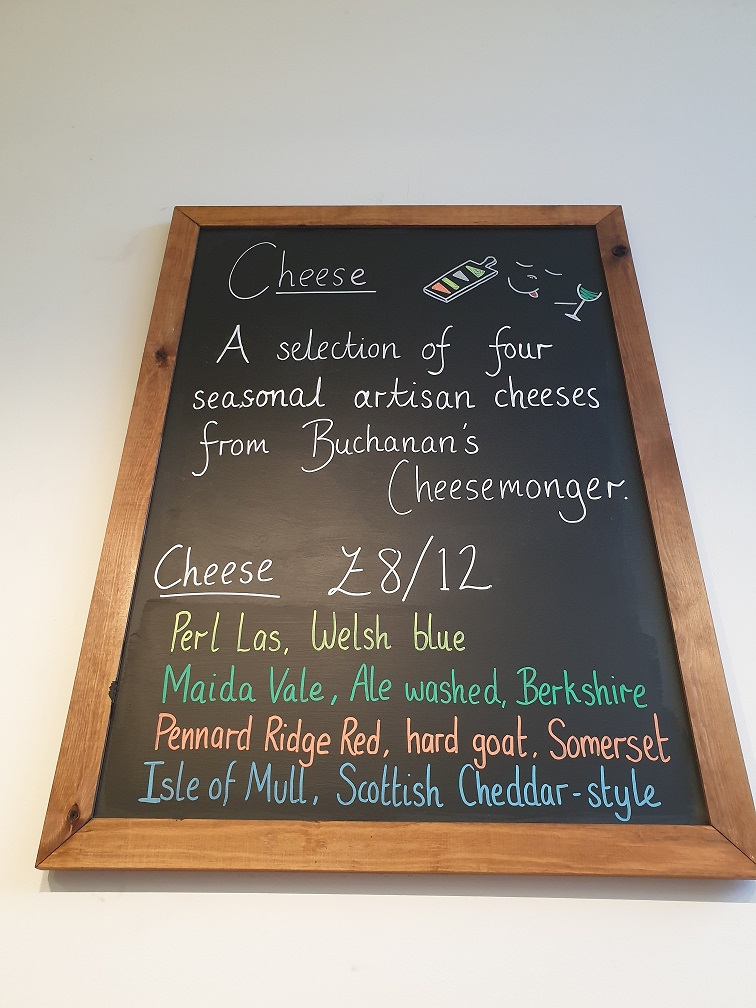 Cheese
A selection of four
seasonal artisan cheeses
from Buchanan's
Cheesemonger.
Cheese £8/12
Perl Las, Welsh blue
Maida Vale, Ale washed, Berkshire
Pennard Ridge Red, hard goat, Somerset
Isle of Mull, Scottish Cheddar-style